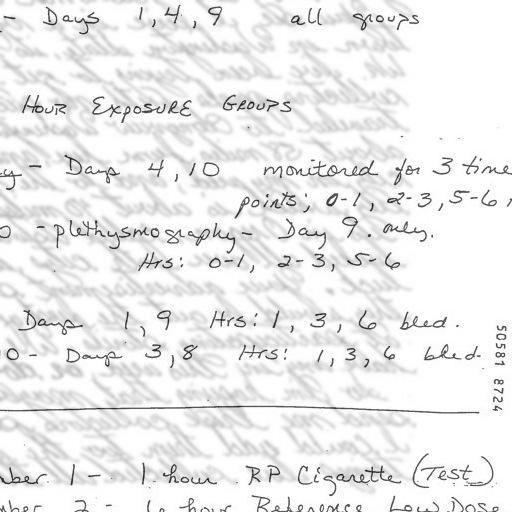 - Days 1, 4, 9 all groups
Hour Exposure Groups
- Days 4, 10 monitored for 3 time
points; 0-1, 2-3, 5-6,
0 - plethysmography - Day 9. only.
Hrs: 0-1, 2-3, 5-6
Days 1, 9 Hrs: 1, 3, 6 bled.
0 - Days 3, 8 Hrs: 1, 3, 6 bled.
50581 8724
1 - 1 hour RP Cigarette (Test)
2 - 6 hour Reference Low Dose